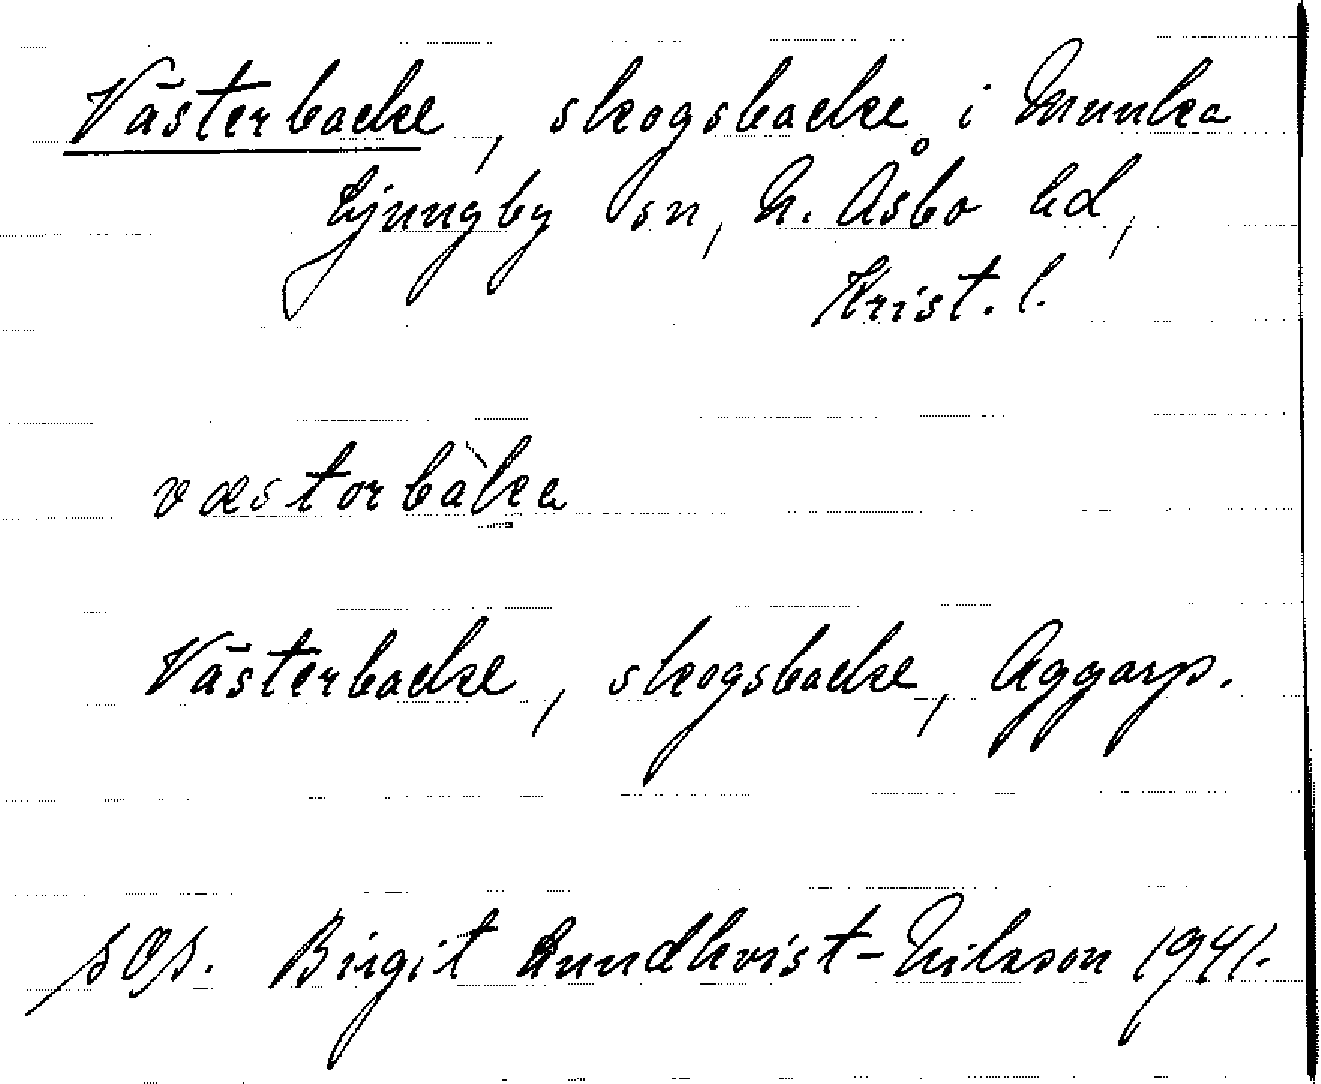 Västerbacke, skogsbacke i Munka
Ljungby sn, N. Åsbo hd,
Krist. l.
væstorbàka
Västerbacke, skogsbacke, Aggarp.
Birgit Lundkvist-Nilsson 1941.